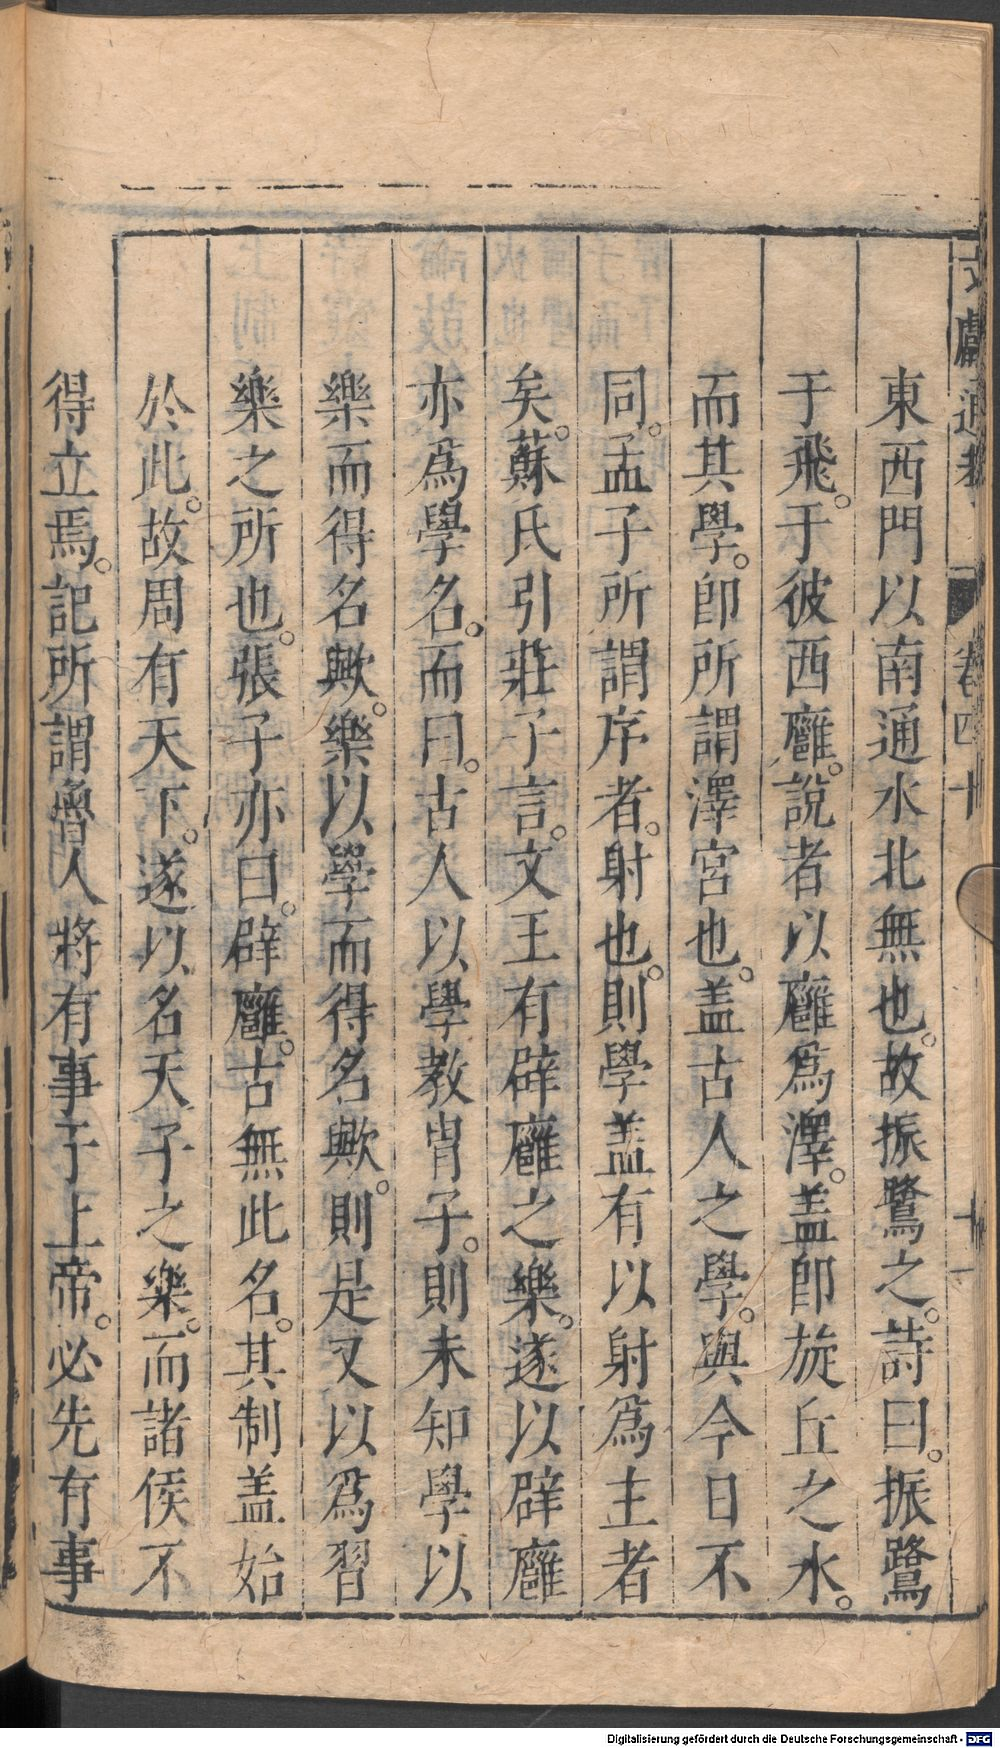 文獻通考 卷四十 十一
東西門以南通水北無也。故振鷺之。詩曰。振鷺
于飛。于彼西廱。說者以廱爲澤。盖卽旋丘之水。
而其學。卽所謂澤宮也。盖古人之學。與今日不
同。孟子所謂序者。射也。則學盖有以射爲主者
矣。蘇氏引莊子言。文王有辟廱之樂。遂以辟廱
亦爲學名。而曰。古人以學教胄子。則未知學以
樂而得名歟。樂以學而得名歟。則是又以爲習
樂之所也。張子亦曰。辟廱。古無此名。其制盖始
於此。故周有天下。遂以名天子之樂。而諸侯不
得立焉。記所謂魯人將有事于上帝。必先有事
Digitalisierung gefördert durch die Deutsche Forschungsgemeinschaft - DFG